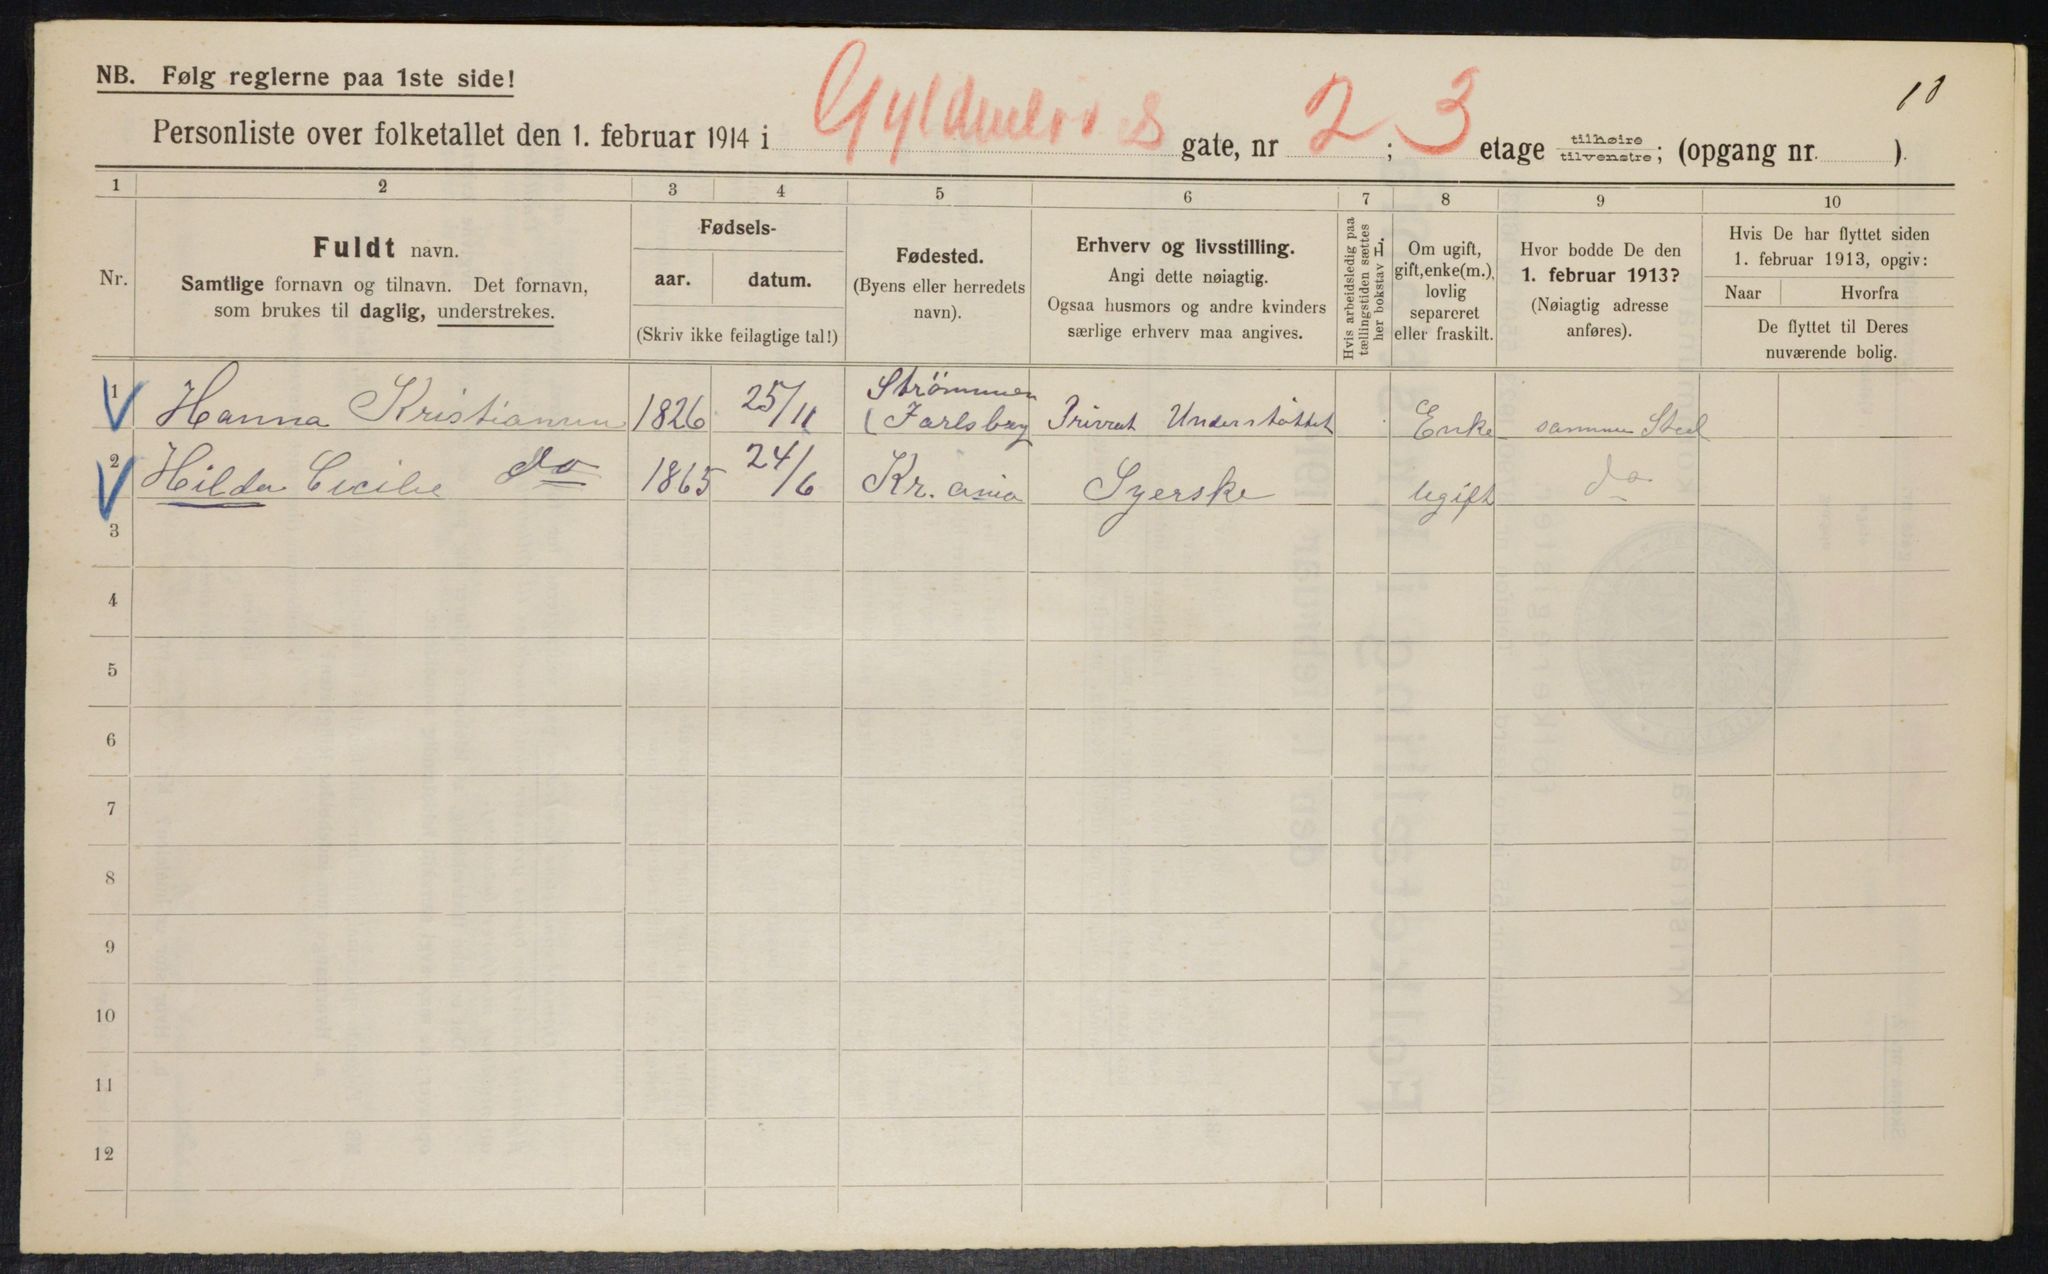 NB. Følg reglerne paa 1ste side!
18
Personliste over folketallet den 1. februar 1914 i Gyldenløves gate, nr 2; 3 etage tilhøire tilvenstre; (opgang nr. ).
1 2 3 4 5 6 7 8 9 10
Nr.
Fuldt navn.
Samtlige fornavn og tilnavn. Det fornavn,
som brukes til daglig, understrekes.
Fødsels-
aar. datum.
(Skriv ikke feilagtige tal!)
Fødested.
(Byens eller herredets
navn).
Erhverv og livsstilling.
Angi dette nøiagtig.
Ogsaa husmors og andre kvinders
særlige erhverv maa angives.
Hvis arbeidsledig paa
tællingstiden sættes
her bokstav L.
Om ugift,
gift, enke(m.),
lovlig
separeret
eller fraskilt.
Hvor bodde De den
1. februar 1913?
(Nøiagtig adresse
anføres).
Hvis De har flyttet siden
1. februar 1913, opgiv:
Naar Hvorfra
De flyttet til Deres
nuværende bolig.
1 Hanna Kristiansen 1826 25/11 Strømmen (Jarlsberg Privat Understøttet Enke samme Sted
2 Hilda Cecilie do 1865 24/6 Kr.ania Syerske ugift do
3
4
5
6
7
8
9
10
11
12